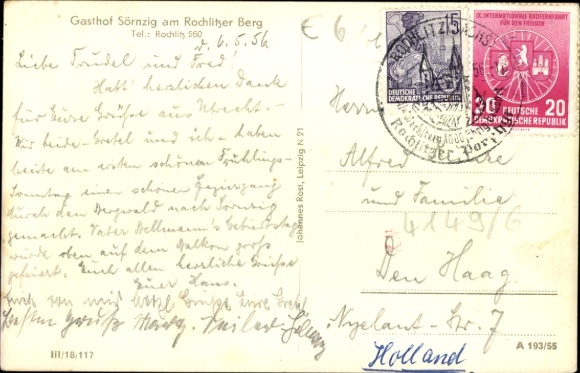 Gasthof Sörnzig am Rochlitzer Berg
Tel.: Rochlitz 260
d. 6.5.56
Liebe Trudel und Fred!
Habt herzlichen Dank
für Eure Grüße aus Utrecht.
Wir beide - Gretel und ich - haben
heute am ersten schönen Frühlings-
Sonntag einen schönen Spaziergang
durch den Bergwald nach Sörnzig
gemacht. Vater Bellmann's Geburtstag
wurde oben auf dem Balkon groß
gefeiert. Euch allen herzliche Grüße
Euer Hans.
Auch von mir
besten Gruß
Johannes Rost, Leipzig N 21
III/18/117
5
DEUTSCHE
DEMOKRATISCHE REPUBLIK
IX. INTERNATIONALE RADFERNFAHRT
FÜR DEN FRIEDEN
20 DEUTSCHE 20
DEMOKRATISCHE REPUBLIK
ROCHLITZ (SACHS)
Rochlitzer
Herrn
Alfred
und Familie
4149/6
Den Haag
Str. 7
Holland
A 193/55